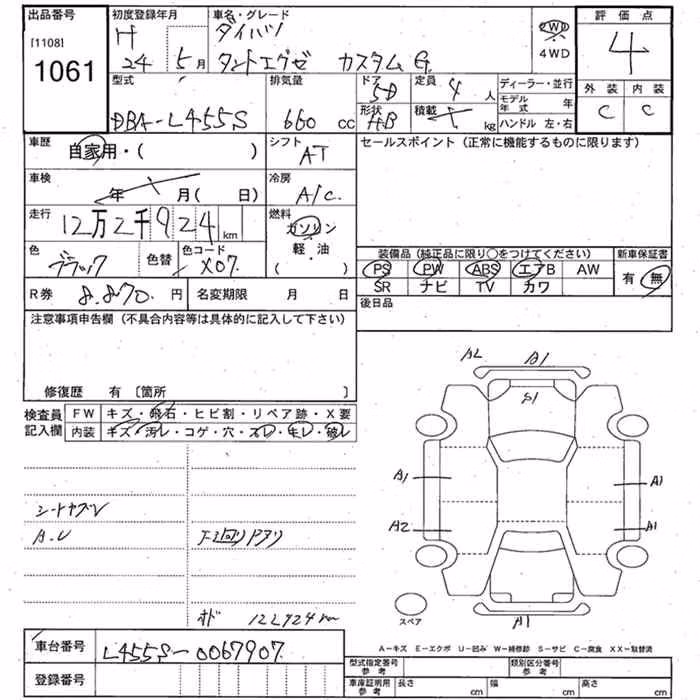 出品番号 初度登録年月 車名・グレード 評価点
[1108] H ダイハツ 2WD
1061 24 5月 タントエグゼ カスタム G 4WD 4
型式 排気量 ドア 定員 ディーラー・並行 外装 内装
5D 4人 モデル年式 年 C C
DBA-L455S 660 cc 形状 積載 ハンドル 左・右
HB kg
車歴 自家用・( ) シフト AT セールスポイント(正常に機能するものに限ります)
車検 年 月( 日) 冷房 A/C
走行 12万2千924km 燃料 ガソリン
軽・油
( )
色 ブラック 色替 色コード X07 装備品(純正品に限り○をつけてください) 新車保証書
PS PW ABS エアB AW 有 無
R券 8,870円 名変期限 月 日 SR ナビ TV カワ
注意事項申告欄(不具合内容等は具体的に記入して下さい) 後日品
修復歴 有〔箇所 〕
検査員 FW キズ・飛石・ヒビ割・リペア跡・X要
記入欄 内装 キズ・汚レ・コゲ・穴・スレ・キレ・破レ
A2 A1
S1
A1 A1
A2 A1
シートヤブレ
A.U
オド 122924km
スペア
A1
A-キズ E-エクボ U-凹み W-補修跡 S-サビ C-腐食 XX-取替済
車台番号 L455S-0067907
型式指定番号 参考 類別区分番号 参考
登録番号 車庫証明用 参考 長さ cm 幅 cm 高さ cm